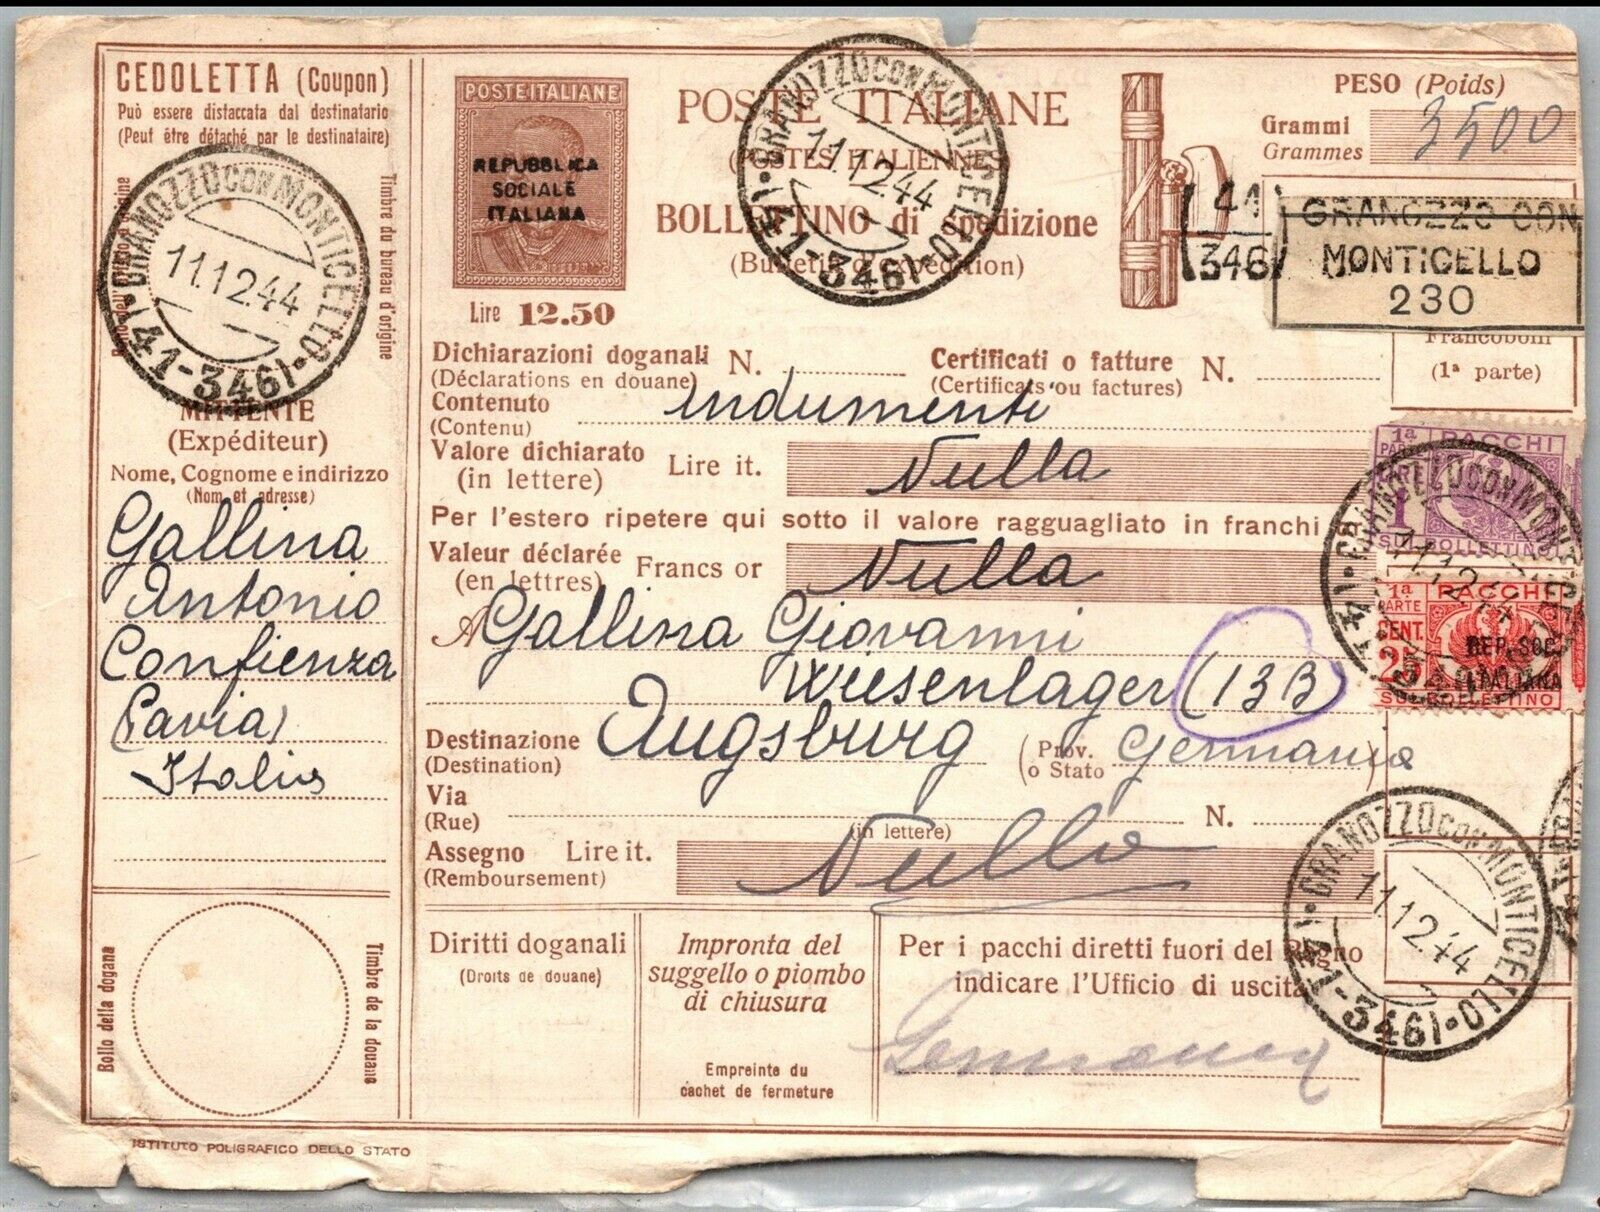 CEDOLETTA (Coupon)
Può essere distaccata dal destinatario
(Peut être détaché par le destinataire)
Timbre du bureau d'origine
GRANOZZO CON MONTICELLO
11.12.44
(41-346)
MITTENTE
(Expéditeur)
Nome, Cognome e indirizzo
(Nom et adresse)
Gallina
Antonio
Confienza
(Pavia)
Italia
Bollo della dogana
Timbre de la douane
ISTITUTO POLIGRAFICO DELLO STATO
POSTE ITALIANE
REPUBBLICA
SOCIALE
ITALIANA
Lire 12.50
POSTE ITALIANE
(POSTES ITALIENNES)
BOLLETTINO di spedizione
(Bulletin d'expédition)
GRANOZZO CON MONTICELLO
11.12.44
(41-346)
PESO (Poids)
Grammi
Grammes
3500
41
346
GRANOZZO CON
MONTICELLO
230
Francobolli
(1ª parte)
Dichiarazioni doganali N.
(Déclarations en douane)
Certificati o fatture N.
(Certificats ou factures)
Contenuto
(Contenu)
indumenti
Valore dichiarato
(in lettere)
Lire it.
Nulla
Per l'estero ripetere qui sotto il valore ragguagliato in franchi
Valeur déclarée
(en lettres)
Francs or
Nulla
A Gallina Giovanni
Wiesenlager (13B)
Destinazione
(Destination)
Augsburg
(Prov.
o Stato
Germania
)
Via
(Rue)
N.
(in lettere)
Assegno Lire it.
(Remboursement)
Nullo
Diritti doganali
(Droits de douane)
Impronta del
suggello o piombo
di chiusura
Empreinte du
cachet de fermeture
Per i pacchi diretti fuori del Regno
indicare l'Ufficio di uscita
Germania
1ª PARTE
PACCHI
1
SUL BOLLETTINO
1ª
PARTE
CENT.
25
PACCHI
REP. SOC.
ITALIANA
SUL BOLLETTINO
GRANOZZO CON MONTICELLO
11.12.44
(41-346)